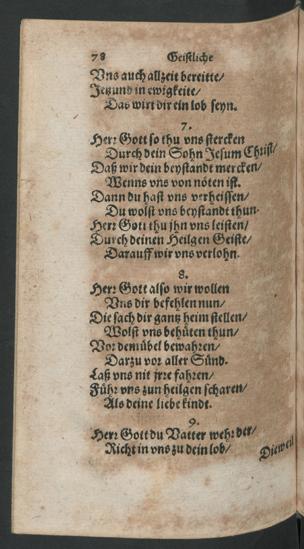 78 Geistliche
Vns auch allzeit bereitte/
Jetzund in ewigkeite/
Das wirt dir ein lob seyn.
7.
Herr Gott so thu vns stercken
Durch dein Sohn Jesum Christ/
Daß wir dein beystandt mercken/
Wenns vns von nöten ist.
Dann du hast vns verheissen/
Du wolst vns beystandt thun.
Herr Gott thu jhn vns leisten/
Durch deinen Heilgen Geiste/
Darauff wir vns verlohn.
8.
Herr Gott also wir wollen
Vns dir befehlen nun/
Die sach dir gantz heim stellen/
Wolst vns behüten thun/
Vor dem übel bewahren/
Darzu vor aller Sünd.
Laß vns nit jrre fahren/
Führ vns zun heilgen scharen/
Als deine liebe kindt.
9.
Herr Gott du Vatter wehrder/
Richt in vns zu dein lob/
Dieweil